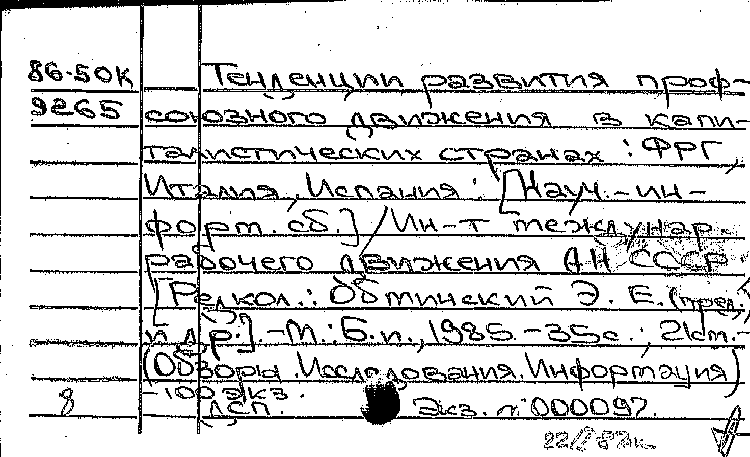 86-50К Тенденции развития проф-
9265 союзного движения в капи-
талистических странах: ФРГ,
Италия, Испания: [Науч.-ин-
форм. сб.] / Ин-т междунар.
рабочего движения АН СССР
[Редкол.: Обминский Э. Е. (пред.)
и др.]. -М.: Б.и., 1985. -35с.; 21см.-
(Обзоры. Исследования. Информация)
-100экз.
8 ДСП. Экз. n:000097.